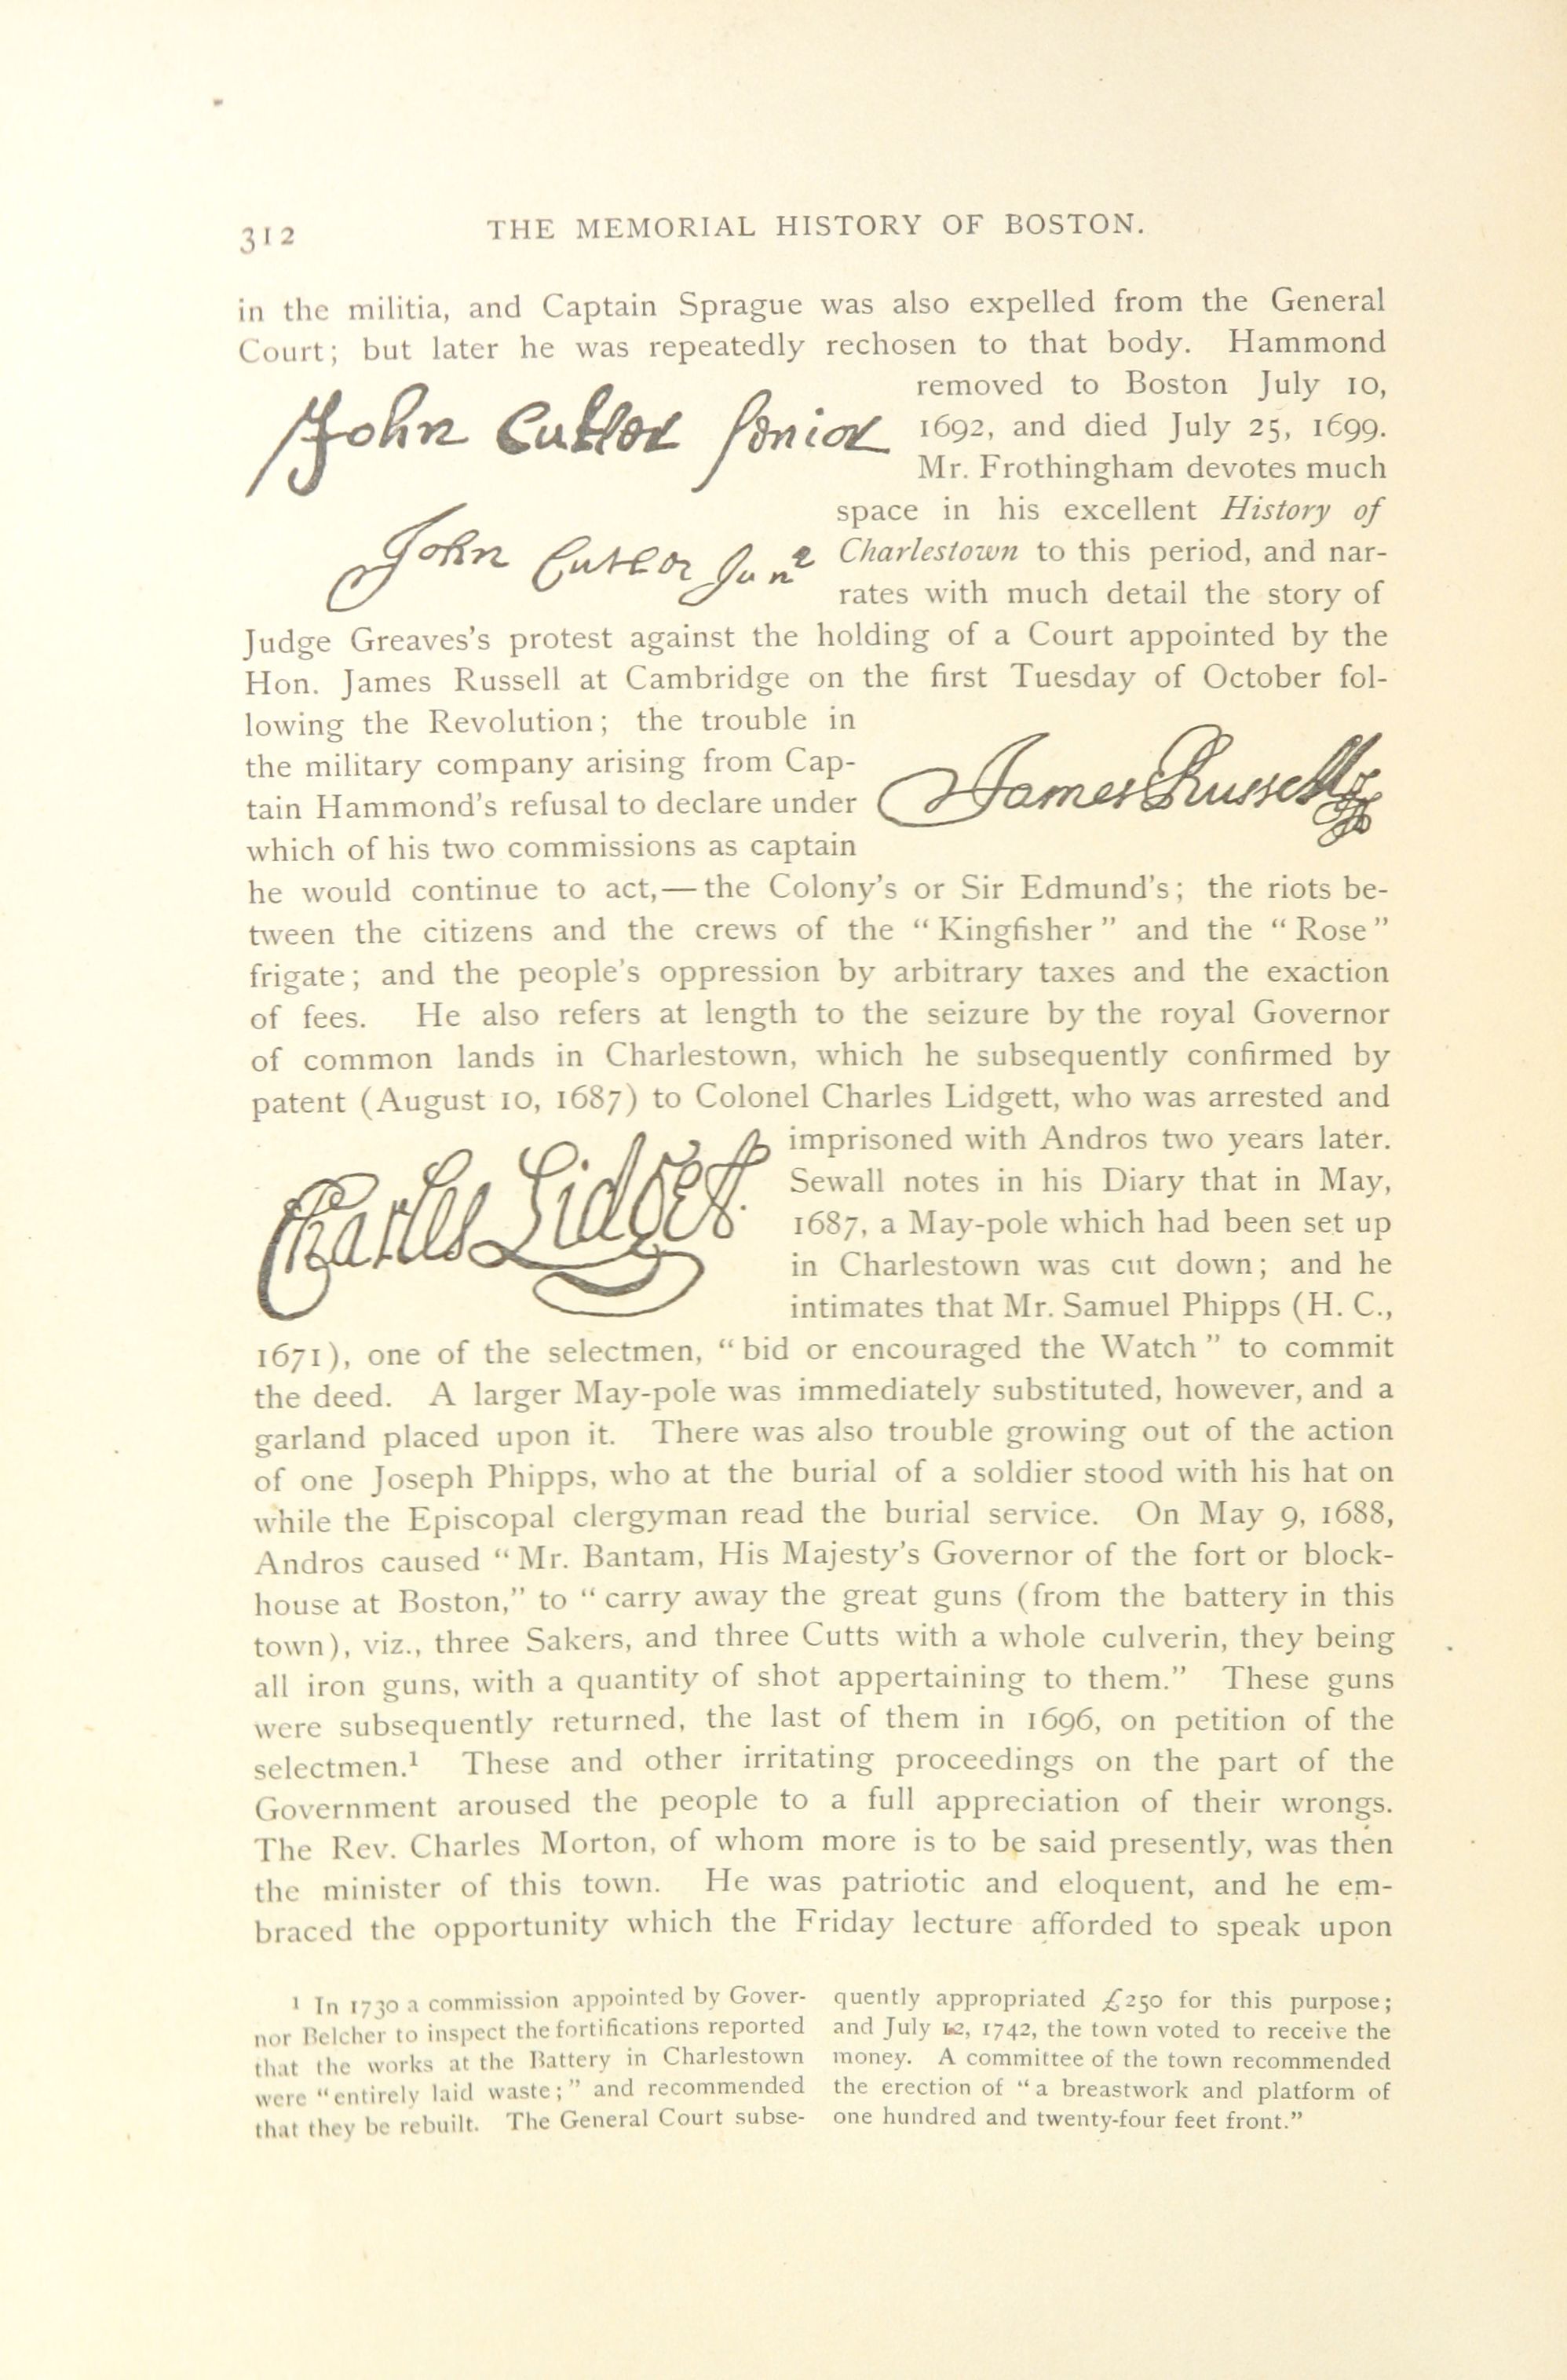 312 THE MEMORIAL HISTORY OF BOSTON.
in the militia, and Captain Sprague was also expelled from the General
Court; but later he was repeatedly rechosen to that body. Hammond
removed to Boston July 10,
John Cutler Senior
1692, and died July 25, 1699.
Mr. Frothingham devotes much
space in his excellent History of
John Cutler Junr
Charlestown to this period, and nar-
rates with much detail the story of
Judge Greaves's protest against the holding of a Court appointed by the
Hon. James Russell at Cambridge on the first Tuesday of October fol-
lowing the Revolution; the trouble in
the military company arising from Cap-
tain Hammond's refusal to declare under
James Russell
which of his two commissions as captain
he would continue to act,—the Colony's or Sir Edmund's; the riots be-
tween the citizens and the crews of the “Kingfisher” and the “Rose”
frigate; and the people's oppression by arbitrary taxes and the exaction
of fees. He also refers at length to the seizure by the royal Governor
of common lands in Charlestown, which he subsequently confirmed by
patent (August 10, 1687) to Colonel Charles Lidgett, who was arrested and
imprisoned with Andros two years later.
Sewall notes in his Diary that in May,
Charles Lidget.
1687, a May-pole which had been set up
in Charlestown was cut down; and he
intimates that Mr. Samuel Phipps (H. C.,
1671), one of the selectmen, “bid or encouraged the Watch” to commit
the deed. A larger May-pole was immediately substituted, however, and a
garland placed upon it. There was also trouble growing out of the action
of one Joseph Phipps, who at the burial of a soldier stood with his hat on
while the Episcopal clergyman read the burial service. On May 9, 1688,
Andros caused “Mr. Bantam, His Majesty's Governor of the fort or block-
house at Boston,” to “carry away the great guns (from the battery in this
town), viz., three Sakers, and three Cutts with a whole culverin, they being
all iron guns, with a quantity of shot appertaining to them.” These guns
were subsequently returned, the last of them in 1696, on petition of the
selectmen.¹ These and other irritating proceedings on the part of the
Government aroused the people to a full appreciation of their wrongs.
The Rev. Charles Morton, of whom more is to be said presently, was then
the minister of this town. He was patriotic and eloquent, and he em-
braced the opportunity which the Friday lecture afforded to speak upon
¹ In 1730 a commission appointed by Gover-
nor Belcher to inspect the fortifications reported
that the works at the Battery in Charlestown
were “entirely laid waste;” and recommended
that they be rebuilt. The General Court subse-
quently appropriated £250 for this purpose;
and July 12, 1742, the town voted to receive the
money. A committee of the town recommended
the erection of “a breastwork and platform of
one hundred and twenty-four feet front.”